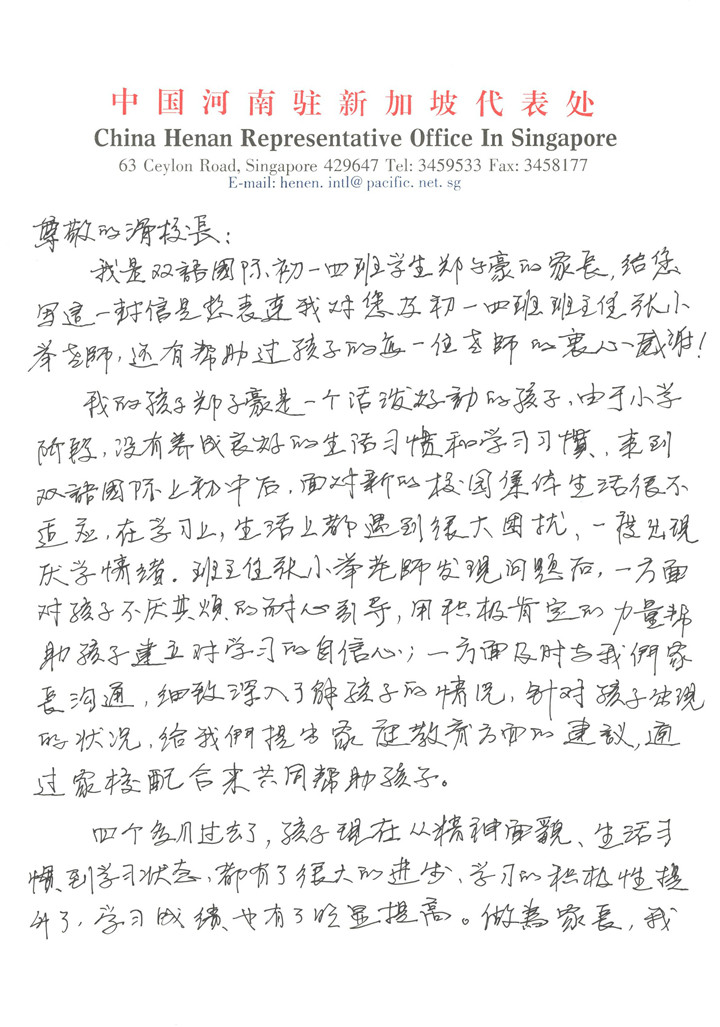 中国河南驻新加坡代表处
China Henan Representative Office In Singapore
63 Ceylon Road, Singapore 429647 Tel: 3459533 Fax: 3458177
E-mail: henen. intl@ pacific. net. sg
尊敬的滑校長：
我是双語國际初一四班学生郑子豪的家長，给您
写這一封信是想表達我对您及初一四班班主任张小
举老師，还有帮助过孩子的每一位老師的衷心感谢！
我的孩子郑子豪是一个活泼好动的孩子，由于小学
阶段，没有养成良好的生活习惯和学习习慣，来到
双語國际上初中后，面对新的校园集体生活很不
适应，在学习上，生活上都遇到很大困扰，一度出现
厌学情绪。班主任张小举老師发现问题后，一方面
对孩子不厌其煩的耐心引导，用积极肯定的力量帮
助孩子建立对学习的自信心；一方面及时与我們家
長沟通，细致深入了解孩子的情况，针对孩子出现
的状况，给我們提出家庭教育方面的建议，通
过家校配合来共同帮助孩子。
四个多月过去了，孩子现在从精神面貌、生活习
慣到学习状态，都有了很大的进步，学习的积极性提
升了，学习成绩也有了明显提高。做為家長，我